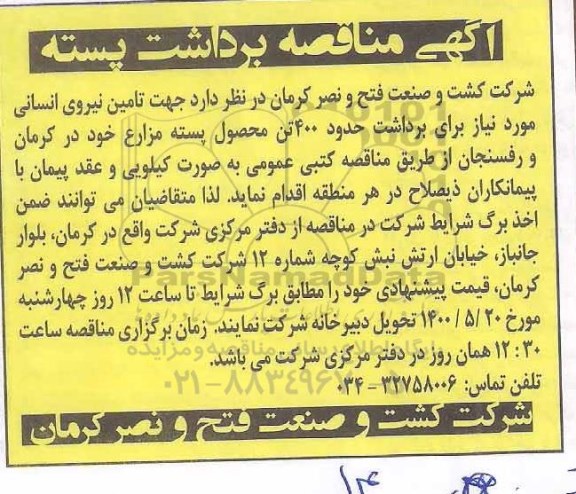 آگهی مناقصه برداشت پسته
شرکت کشت و صنعت فتح و نصر کرمان در نظر دارد جهت تامین نیروی انسانی
مورد نیاز برای برداشت حدود ۴۰۰تن محصول پسته مزارع خود در کرمان
و رفسنجان از طریق مناقصه کتبی عمومی به صورت کیلویی و عقد پیمان با
پیمانکاران ذیصلاح در هر منطقه اقدام نماید. لذا متقاضیان می توانند ضمن
اخذ برگ شرایط شرکت در مناقصه از دفتر مرکزی شرکت واقع در کرمان، بلوار
جانباز، خیابان ارتش نبش کوچه شماره ۱۲ شرکت کشت و صنعت فتح و نصر
کرمان، قیمت پیشنهادی خود را مطابق برگ شرایط تا ساعت ۱۲ روز چهارشنبه
مورخ ۱۴۰۰/۵/۲۰ تحویل دبیرخانه شرکت نمایند. زمان برگزاری مناقصه ساعت
۱۲:۳۰ همان روز در دفتر مرکزی شرکت می باشد.
تلفن تماس: ۳۲۷۵۸۰۰۶-۰۳۴
شرکت کشت و صنعت فتح و نصر کرمان
ParsNamadData
پایگاه اطلاع رسانی مناقصه و مزایده
۰۲۱-۸۸۳۴۹۶۷۰-۵